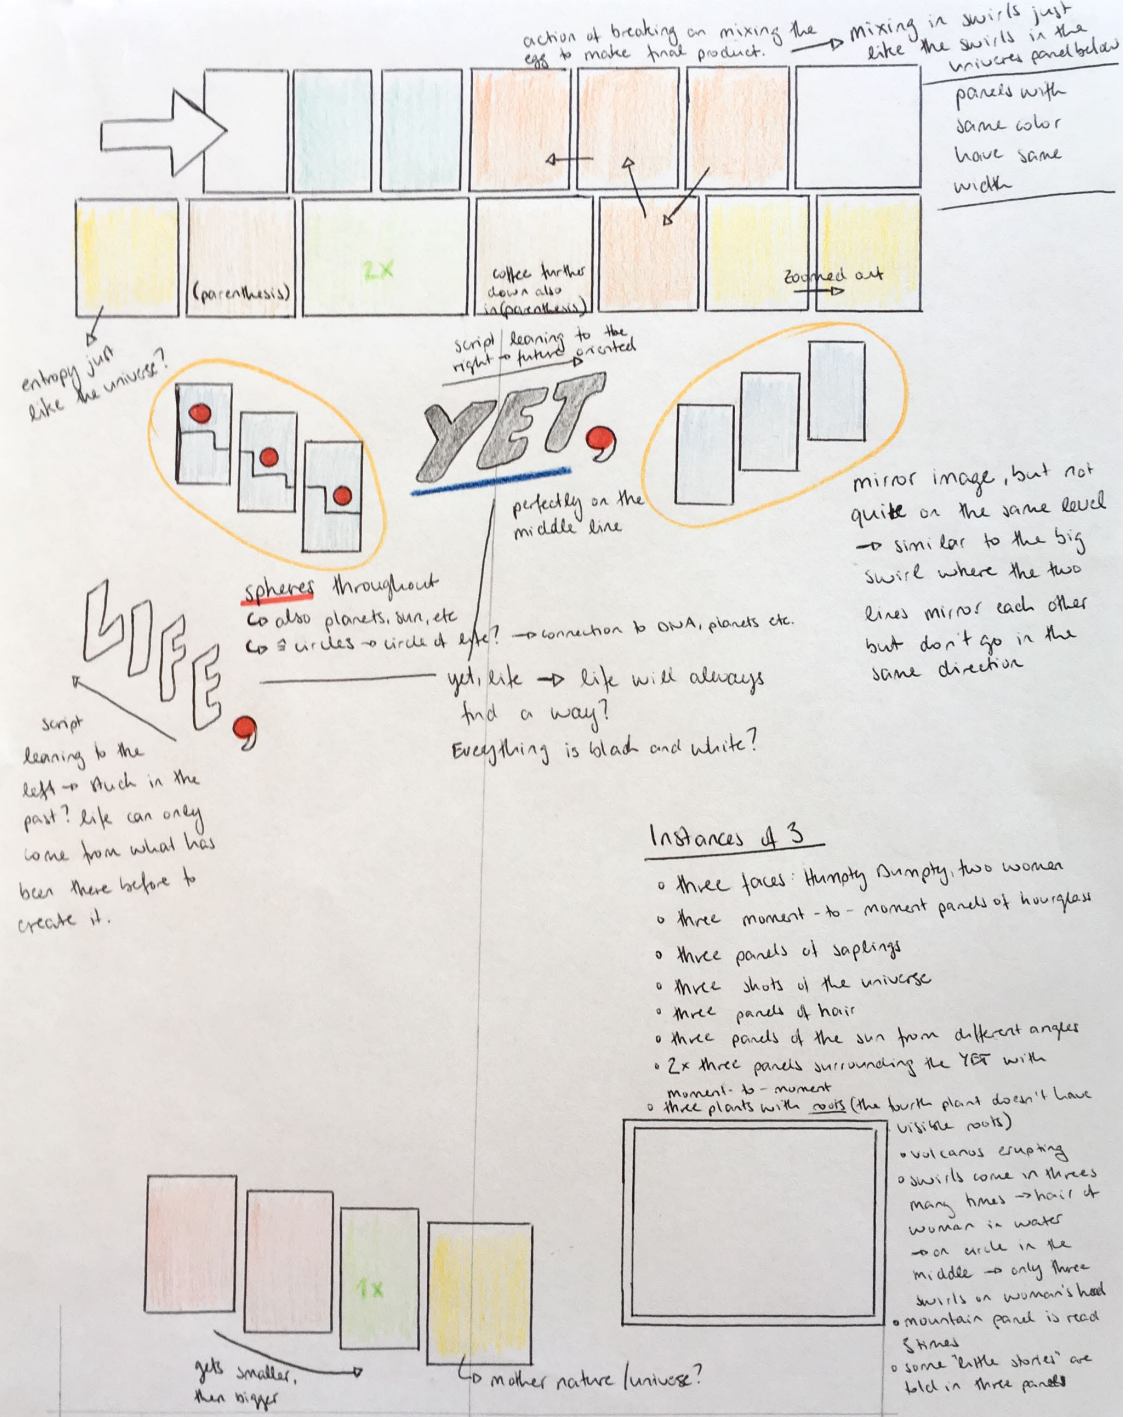 action of breaking an mixing the
egg to make final product.
mixing in swirls just
like the swirls in the
univeres panel below
panels with
same color
have same
width
(parenthesis)
2x
coffee further
down also
in (parenthesis)
Zoomed out
entropy just
like the universe?
script leaning to the
right → future oriented
YET,
perfectly on the
middle line
mirror image, but not
quite on the same level
→ similar to the big
swirl where the two
lines mirror each other
but don't go in the
same direction
spheres throughout
↳ also planets, sun, etc
↳ circles → circle of life? → connection to DNA, planets etc.
LIFE,
yet, life → life will always
find a way?
Everything is black and white?
script
leaning to the
left → stuck in the
past? life can only
come from what has
been there before to
create it.
Instances of 3
• three faces: Humpty Dumpty, two women
• three moment-to-moment panels of hourglass
• three panels of saplings
• three shots of the universe
• three panels of hair
• three panels of the sun from different angles
• 2x three panels surrounding the YET with
moment-to-moment
• three plants with roots (the fourth plant doesn't have
visible roots)
• volcanos erupting
• swirls come in threes
many times → hair of
woman in water
→ on circle in the
middle → only three
swirls on woman's head
• mountain panel is read
3 times
• some "little stories" are
told in three panels
1x
gets smaller,
then bigger
mother nature / universe?